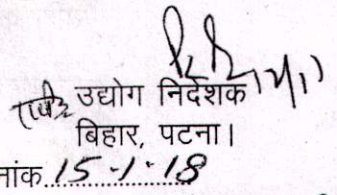 उद्योग निर्देशक
बिहार, पटना।
नांक. 15-1-18